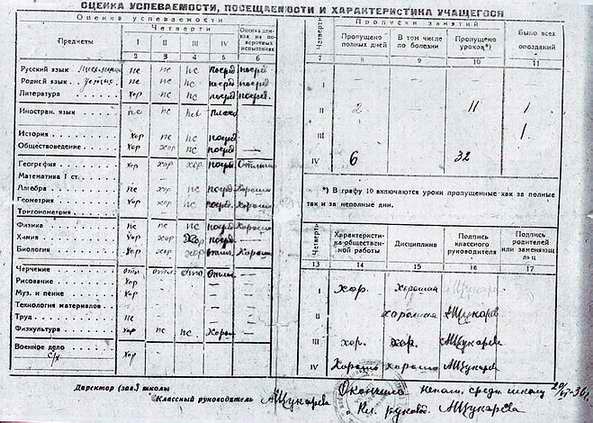 ОЦЕНКА УСПЕВАЕМОСТИ, ПОСЕЩАЕМОСТИ И ХАРАКТЕРИСТИКА УЧАЩЕГОСЯ
Оценка успеваемости
Предметы
Четверти
Оценка
на по-
верочных
испытаниях
I II III IV
2 3 4 5 6
Русский язык пс пс посред посред
Родной язык пс пс посред посред
Литература хор пс пс посред посред
Иностран. язык пс пс плохо
История хор пс пс посред —
Обществоведение хор хор пс посред —
География хор хор хор посред Отлично
Математика 1 ст. — — — —
Алгебра пс хор пс посред Хорошо
Геометрия хор хор пс посред Хорошо
Тригонометрия
Физика пс пс пс посред Хорошо
Химия хор хор хор посред
Биология хор хор хор Хорошо
Черчение отл отл отл отли —
Рисование хор — — — —
Муз. и пение хор — — — —
Технология материалов — — — —
Труд пс — — — —
Физкультура хор пс пс Хорош —
Военное дело хор — — — —
Директор (зав.) школы
Классный руководитель АЩукарева
Прописки занятий
Четверти
Пропущено
полных дней
В том числе
по болезни
Пропущено
уроков*)
Было всех
опозданий
7 8 9 10 11
I
II 2 11 1
III 1
IV 6 32
*) В графу 10 включаются уроки пропущенные как за полные
так и за неполные дни.
Четверти
Характеристи-
ка общественной
работы
Дисциплина
Подпись
классного
руководителя
Подпись
родителей
или заменяющ.
лиц
13 14 15 16 17
I хор. хорошая
II хорошая АЩукарев
III хор. хор. АЩукарева
IV Хорошо хорошо АЩукарева
Окончила непол. средн школу 20/VI-36г.
Кл. руковод. АЩукарева